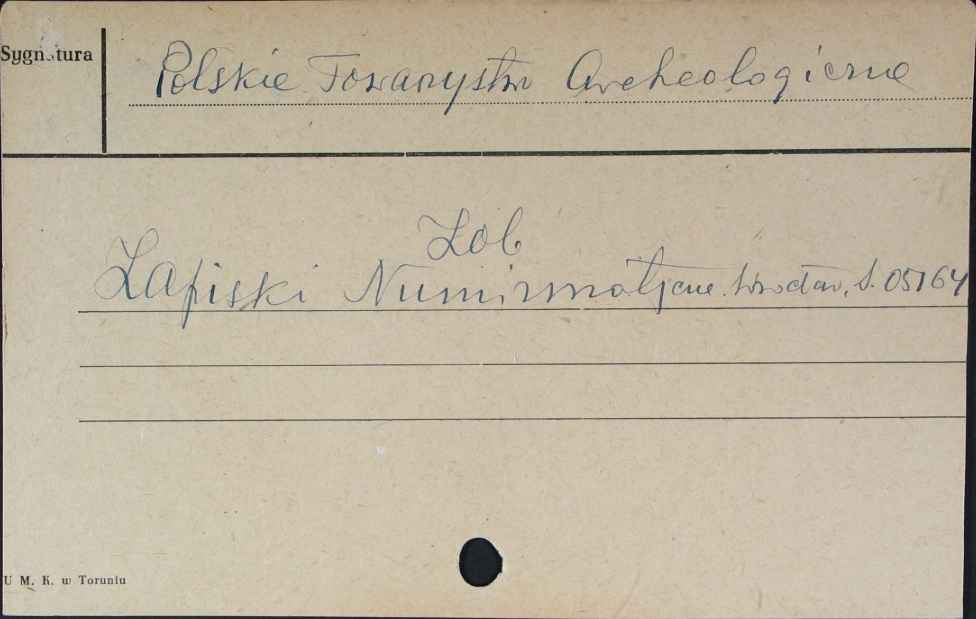 Sygnatura
Polskie Towarzystwo Archeologiczne
Zob
Zapiski Numizmatyczne. Wrocław, S. 05164
U M. K. w Toruniu